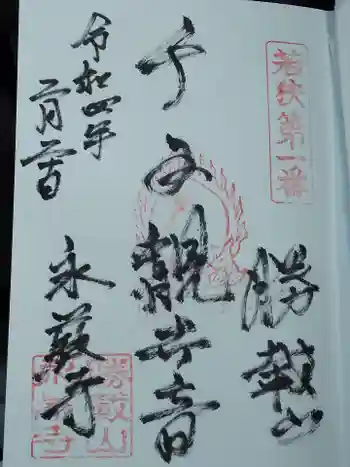 若狭第一番
勝載山
千手観世音
令和四年
二月
永厳寺
勝載山